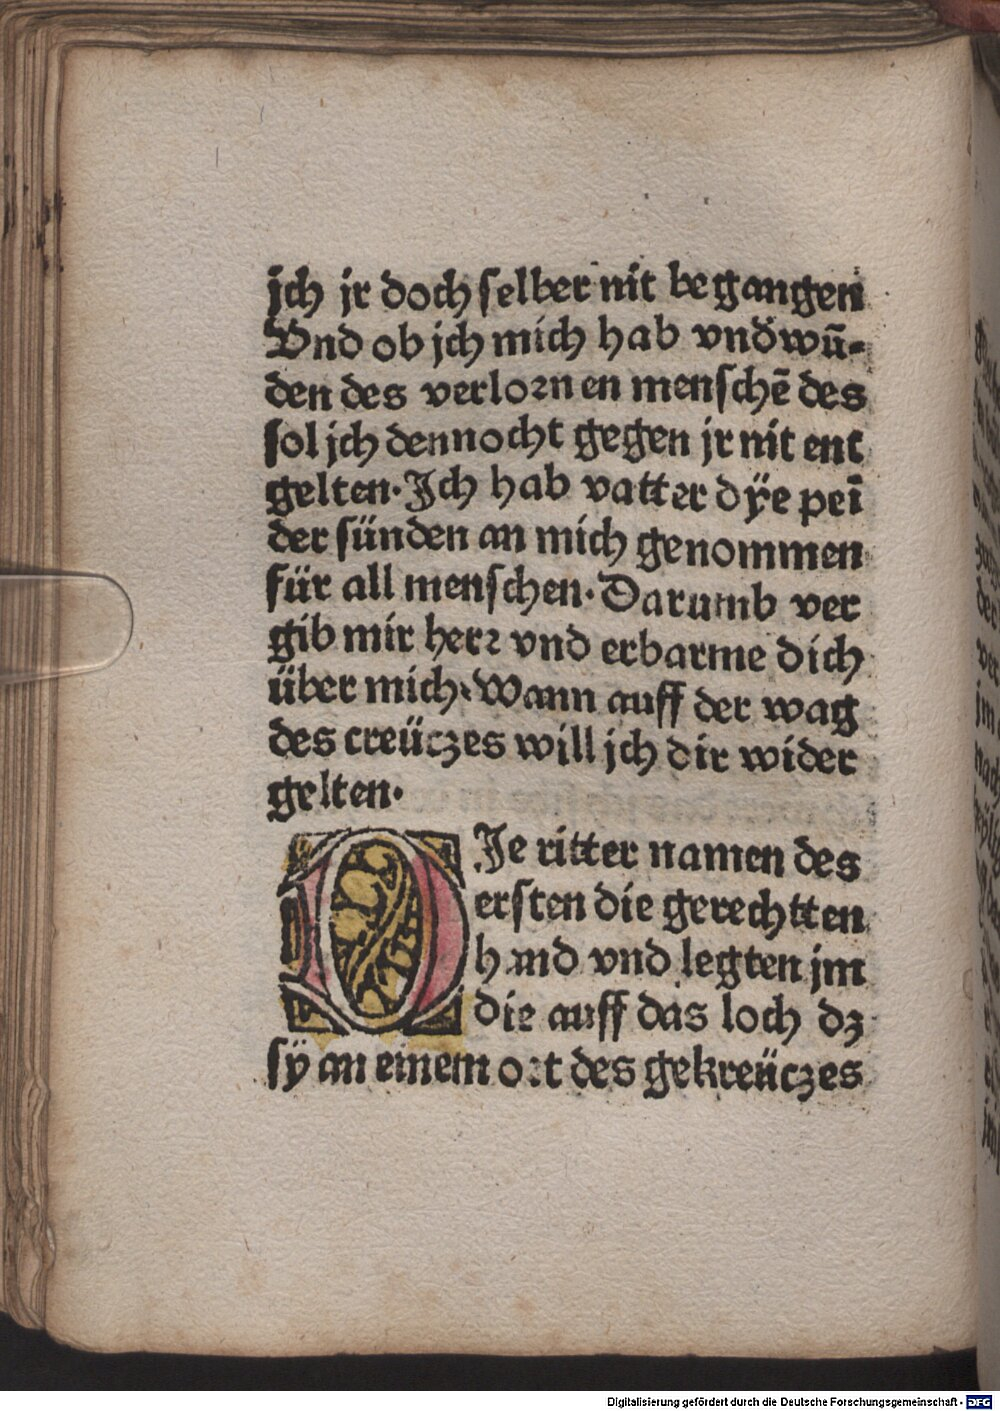 jch jr doch selber nit begangen
Vnd ob jch mich hab vnd̕wū-
den des verlornen menschē des
sol jch dennocht gegen jr nit ent
gelten. Jch hab vatter dÿe peī
der sünden an mich genommen
für all menschen. Darumb ver
gib mir herr vnd erbarme dich
über mich. Wann auff der wag
des creüczes will jch dir wider
gelten.
DJe ritter namen des
ersten die gerechtten
hand vnd legten jm
die auff das loch dz
sÿ an einem ort des gekreüczes
Digitalisierung gefördert durch die Deutsche Forschungsgemeinschaft - DFG